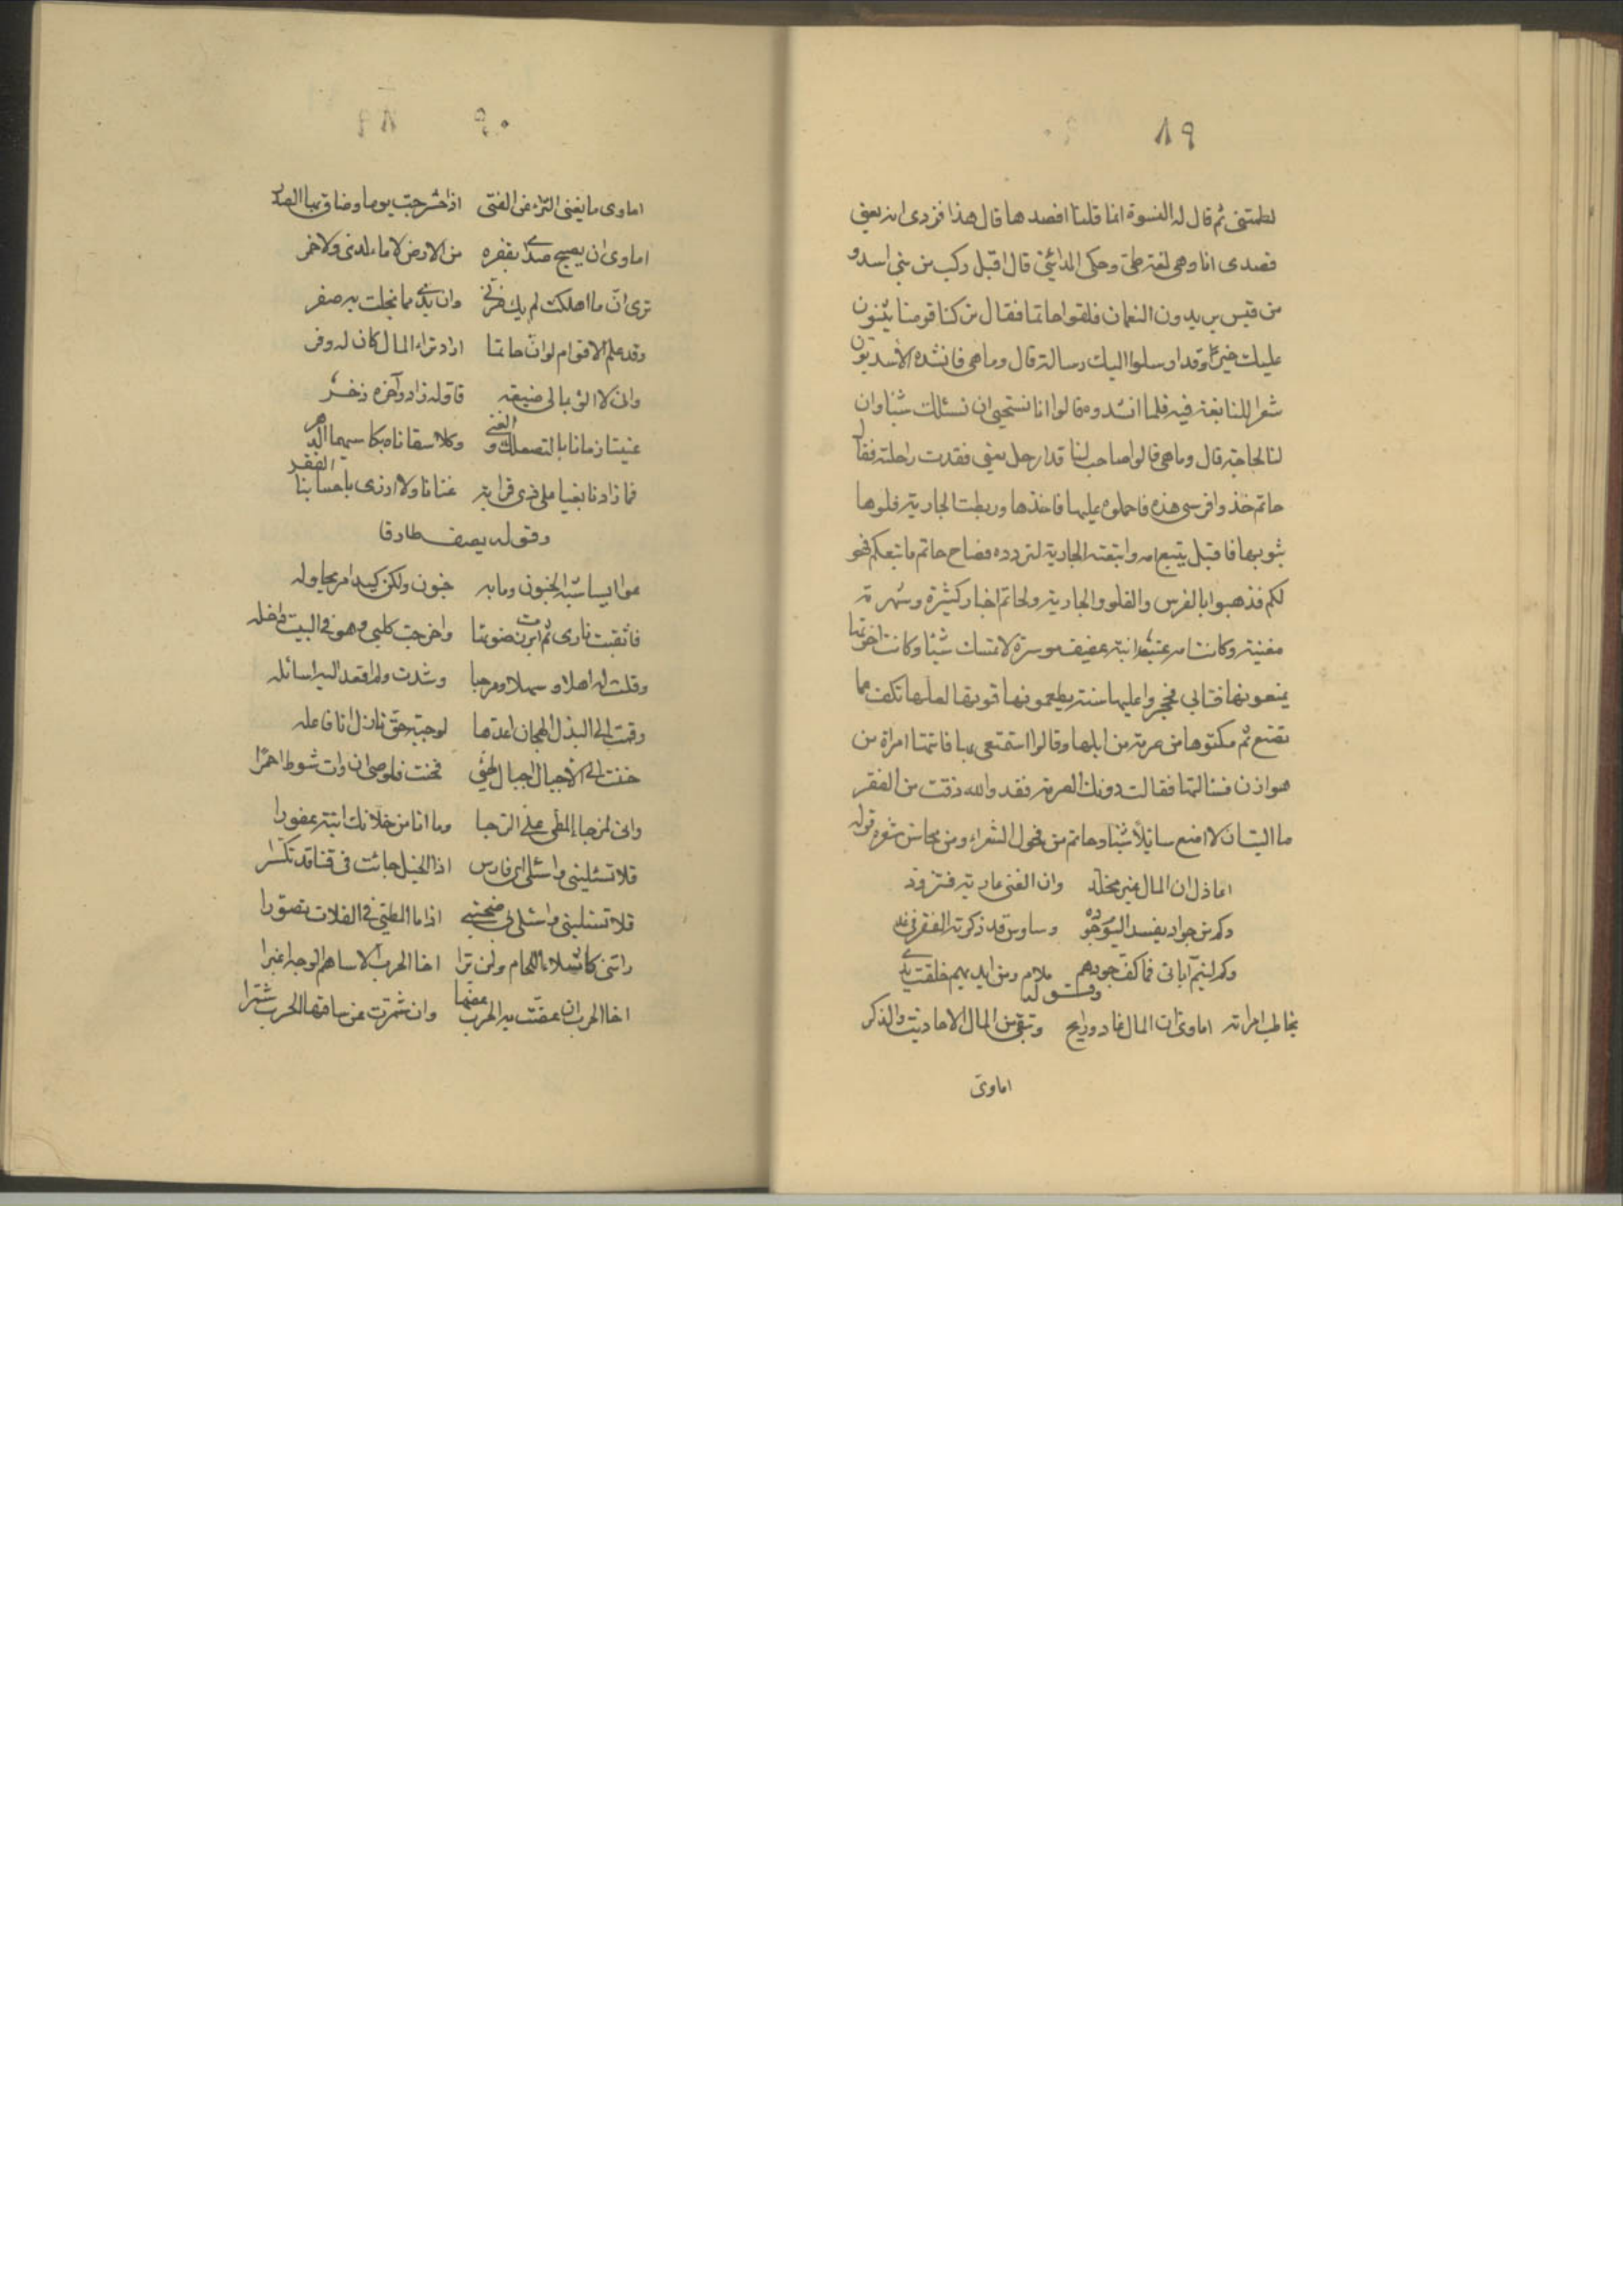 ٨٩
لطمتنى ثم قال له النسوة انما قلنا افصدها قال هذا فزدى انه يعنى
فصدى انا وهى لغة طى وحكى المدائنى قال اقبل ركب من بنى اسد و
من قيس يريدون النعمان فلقوا حاتما فقال تركنا قومنا يثنون
عليك خيرا وقد ارسلوا اليك رسالة قال وما هى فانشده الاسديون
شعرا للنابغة فيه فلما انشدوه قالوا انا نستحيى ان نسئلك شيئا وان
لنا لحاجة قال وما هى قالوا صاحب لنا قد ارجل يعنى فقدت راحلته فقال
حاتم خذوا فرسى هذه فاحملوه عليها فاخذها وربطت الجارية فلوها
بثوبها فاقبل يتبع امه واتبعته الجارية لترده فصاح حاتم ما تبعكم فهو
لكم فذهبوا بالفرس والفلو والجارية ولحاتم اخبار كثيرة وشهرة
مغنية وكانت امه عتبة ابنة عفيف موسرة لا تمسك شيئا وكانت اخوتها
يمنعونها فتابى فحجروا عليها سنة يطعمونها قوتها لعلها تكف عما
تصنع ثم مكنوها من صرمة من ابلها وقالوا استمتعى بها فاتتها امراة من
هوازن فسالتها فقالت دونك الصرمة فقد والله ذقت من الفقر
ما اليت ان لا امنع سايلا شيئا وحاتم من فحول الشعراء ومن محاسن شعره قوله
اعاذل ان المال غير مخلد وان الغنى عارية فتزود
وكم من جواد يفسد اليوم جوده وساوس قد ذكرته الفقر فى غد
وكم ليم آبائى فما كف جودهم ملام ومن ايديهم خلقت يدى
وقوله
يخاطب امراته اماوى ان المال غاد ورايح وتبقى من المال الاحاديث والذكر
اماوى
٩٠
اماوى ما يغنى الثراء عن الفتى اذا حشرجت يوما وضاق بها الصدر
اماوى ان يصبح صداى بقفرة من الارض لا ماء لدى ولا خمر
ترى ان ما اهلكت لم يك ضرنى وان يدى مما بخلت به صفر
وقد علم الاقوام لو ان حاتما اراد ثراء المال كان له وفر
وانى لا الو بمالى ضيعة فاوله زاد وآخره ذخر
غنينا زمانا بالتصعلك و الغنى وكلا سقاناه بكاسيهما الدهر
فما زادنا بغيا على ذى قرابة غنانا ولا ازرى باحسابنا الفقر
وقوله يصف طارقا
عوى ايسا شبه الجنون وما به جنون ولكن كيد امر يحاوله
فاثقبت نارى ثم ابرزت ضوئها واخرجت كلبى وهو فى البيت داخله
وقلت له اهلا و سهلا ومرحبا وشدت ولم اقعد اليه اسائله
وقمت الى البذل الهجان اعدها لوجبة حق نازل انا فاعله
حننت الى الاجبال اجبال طى فحنت قلوصى ان رات شوط احمرا
وانى لمزجاء المطى على الوجا وما انا من خلانك ابنة عفزرا
فلا تسئلينى واسئلى اى فارس اذا الخيل جائت فى قنا قد تكسرا
فلا تسئلينى واسئلى بى صحبتى اذا ما المطى فى الفلاة تضورا
راتنى كاشلاء اللجام ولن ترا اخا الحرب الا ساهم الوجه اغبرا
اخا الحرب ان عضت به الحرب عضها وان شمرت عن ساقها الحرب شمرا